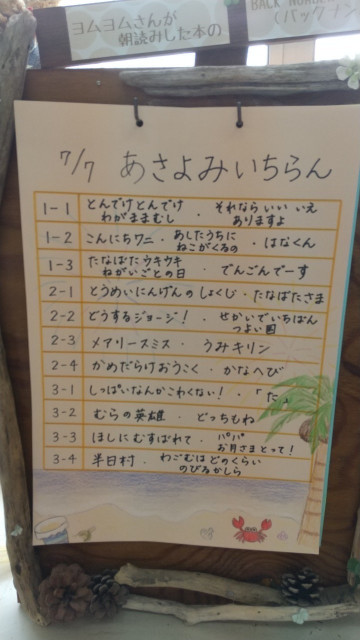 ヨムヨムさんが
朝読みした本の
BACK NUMBER
(バックナン
7/7 あさよみいちらん
1-1 とんでけとんでけ わがままむし ・ それなら いい いえ ありますよ
1-2 こんにちワニ ・ あしたうちに ねこがくるの ・ はなくん
1-3 たなばたウキウキ ねがいごとの日 ・ でんごんでーす
2-1 とうめいにんげんのしょくじ ・ たなばたさま
2-2 どうするジョージ! ・ せかいでいちばん つよい国
2-3 メアリー・スミス ・ うみキリン
2-4 かめだらけおうこく ・ かなへび
3-1 しっぱいなんかこわくない! ・ 「た」
3-2 むらの英雄 ・ どっちもね
3-3 ほしにむすばれて ・ パパ お月さまとって!
3-4 半日村 ・ わごむは どのくらい のびるかしら